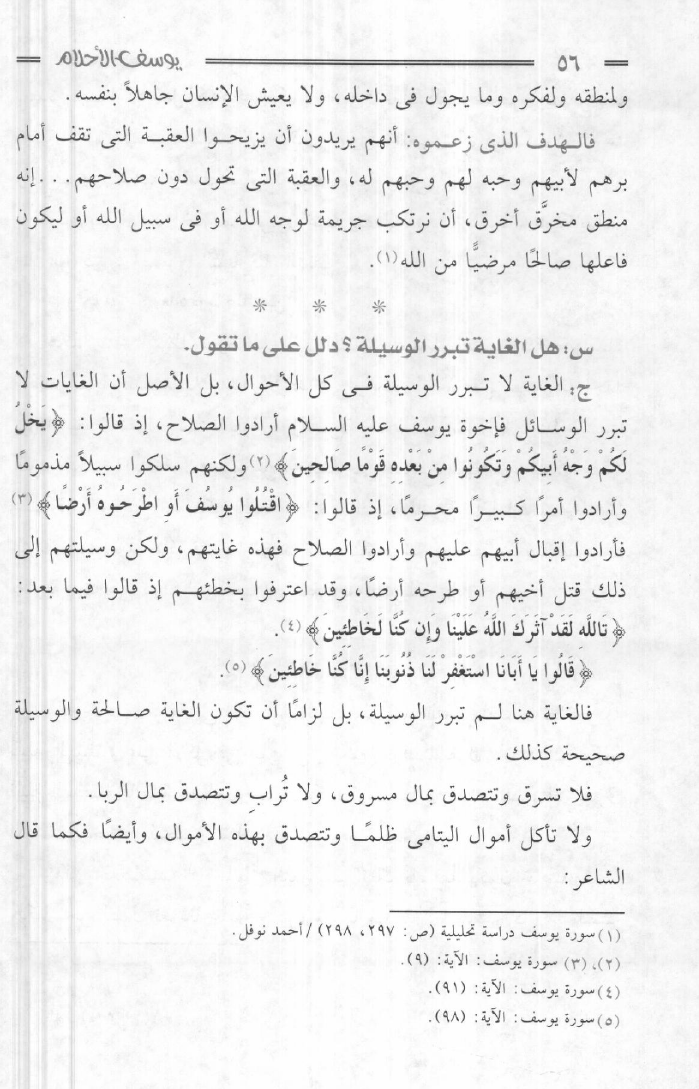 ٥٦ يوسف الأحلام
ولمنطقه ولفكره وما يجول فى داخله، ولا يعيش الإنسان جاهلاً بنفسه.
فالـهدف الذى زعـموه: أنهم يريدون أن يزيحـوا العقبـة التى تقف أمام
برهم لأبيهم وحبه لهم وحبهم له، والعقبة التى تحول دون صلاحهم... إنه
منطق مخرَّق أخرق، أن نرتكب جريمة لوجه الله أو فى سبيل الله أو ليكون
فاعلها صالحًا مرضيًّا من الله(١).
* * *
س: هل الغاية تبرر الوسيلة؟ دلل على ما تقول.
ج: الغاية لا تـبرر الوسيلة فـى كل الأحوال، بل الأصل أن الغايات لا
تبرر الوسـائل فإخوة يوسف عليه السـلام أرادوا الصلاح، إذ قالوا: ﴿ يَخْلُ
لَكُمْ وَجْهُ أَبِيكُمْ وَتَكُونُوا مِنْ بَعْدِهِ قَوْمًا صَالِحِينَ ﴾(٢) ولكنهم سلكوا سبيلاً مذمومًا
وأرادوا أمرًا كـبيـرًا محـرمًا، إذ قالوا: ﴿ اقْتُلُوا يُوسُفَ أَوِ اطْرَحُوهُ أَرْضًا ﴾(٣)
فأرادوا إقبال أبيهم عليهم وأرادوا الصلاح فهذه غايتهم، ولكن وسيلتهم إلى
ذلك قتل أخيهم أو طرحه أرضًا، وقد اعترفوا بخطئهـم إذ قالوا فيما بعد:
﴿ تَاللَّهِ لَقَدْ آثَرَكَ اللَّهُ عَلَيْنَا وَإِن كُنَّا لَخَاطِئِينَ ﴾(٤).
﴿ قَالُوا يَا أَبَانَا اسْتَغْفِرْ لَنَا ذُنُوبَنَا إِنَّا كُنَّا خَاطِئِينَ ﴾(٥).
فالغاية هنا لـم تبرر الوسيلة، بل لزامًا أن تكون الغاية صـالحة والوسيلة
صحيحة كذلك.
فلا تسرق وتتصدق بمال مسروق، ولا تُرابِ وتتصدق بمال الربا.
ولا تأكل أموال اليتامى ظلمًـا وتتصدق بهذه الأموال، وأيضًا فكما قال
الشاعر:
(١) سورة يوسف دراسة تحليلية (ص: ٢٩٧، ٢٩٨) / أحمد نوفل.
(٢)، (٣) سورة يوسف: الآية: (٩).
(٤) سورة يوسف: الآية: (٩١).
(٥) سورة يوسف: الآية: (٩٨).